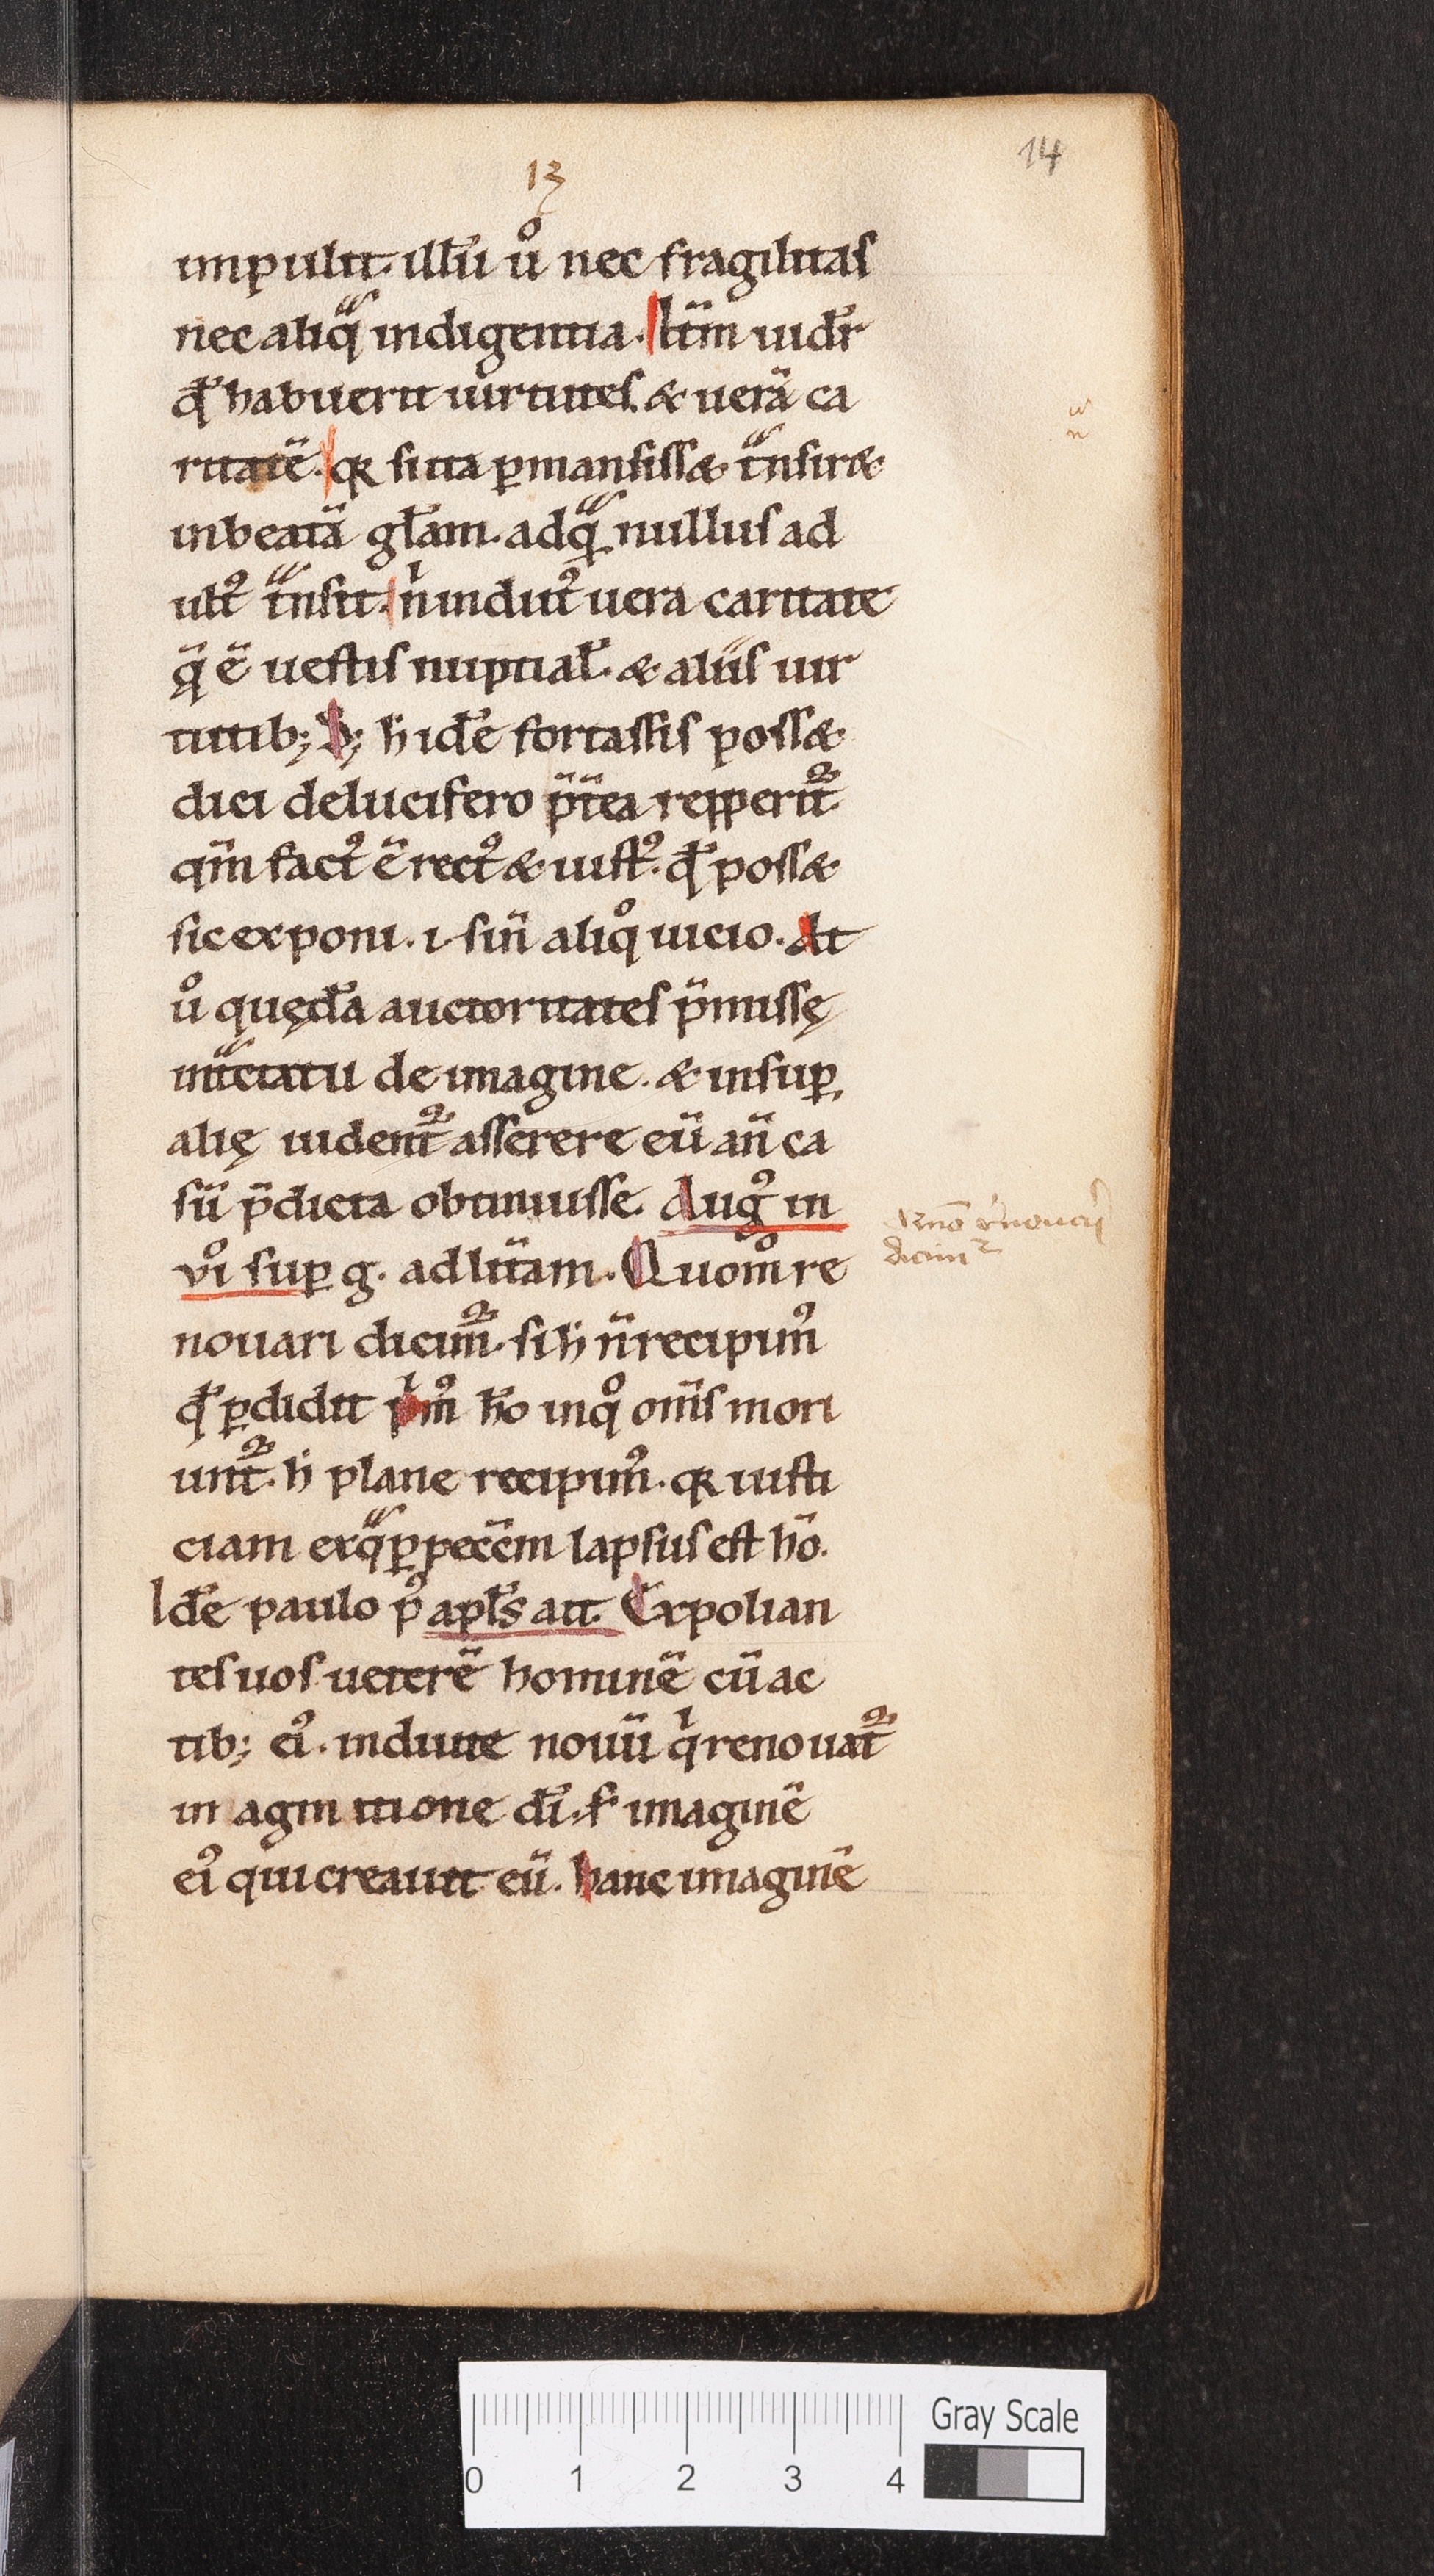 13
14
impulit. illũ uͦ nec fragilitas
nec aliqᷓ indigentia. Itm̄ uidr̄
qđ habuerit uirtutes. & uerā ca
ritatē. qꝛ si ita ꝑmansiss& tᷓnsir&
in beatā gl̄am. ad qᷓ nullus ad
ult᾿ tᷓnsit. nͥ induit᾿ uera caritate
q̄ ē uestis nuptial̄. & aliis uir
tutib; S; h̄ idē fortassis poss&
dici de lucifero p̄t̄ea repperit᷑
qm̄ fact᾿ ē rect᾿ & iust᾿. qđ poss&
sic exponi. i. sin̄ aliqͦ uicio. At
uͦ quędā auctoritates p̄missę
in tᷓctatu de imagine. & insuꝑ
alię uident᷑ asserere eū an̄ ca
sū p̄dicta obtinuisse. Aug᾿ in
vͦi suꝑ g. ad lit̄am. Quomͦ re
nouari dicim᷑. si h̄ n̄ recipim᾿
qđ ꝑdidit pͥm᾿ hō in qͦ om̄s mori
unt᷑. h̄ plane recipim᾿. qꝛ iusti
ciam ex qᷓ ꝑ pecc̄m lapsus est hō.
Idē paulo p᾿ apl̄s ait. Expolian
tes uos ueterē hominē cū ac
tib; ei᾿. induite nouū qͥ renouat᷑
in agnitione dī. s̄ imaginē
ei᾿ qui creauit eū. hanc imaginē
dicim᷑